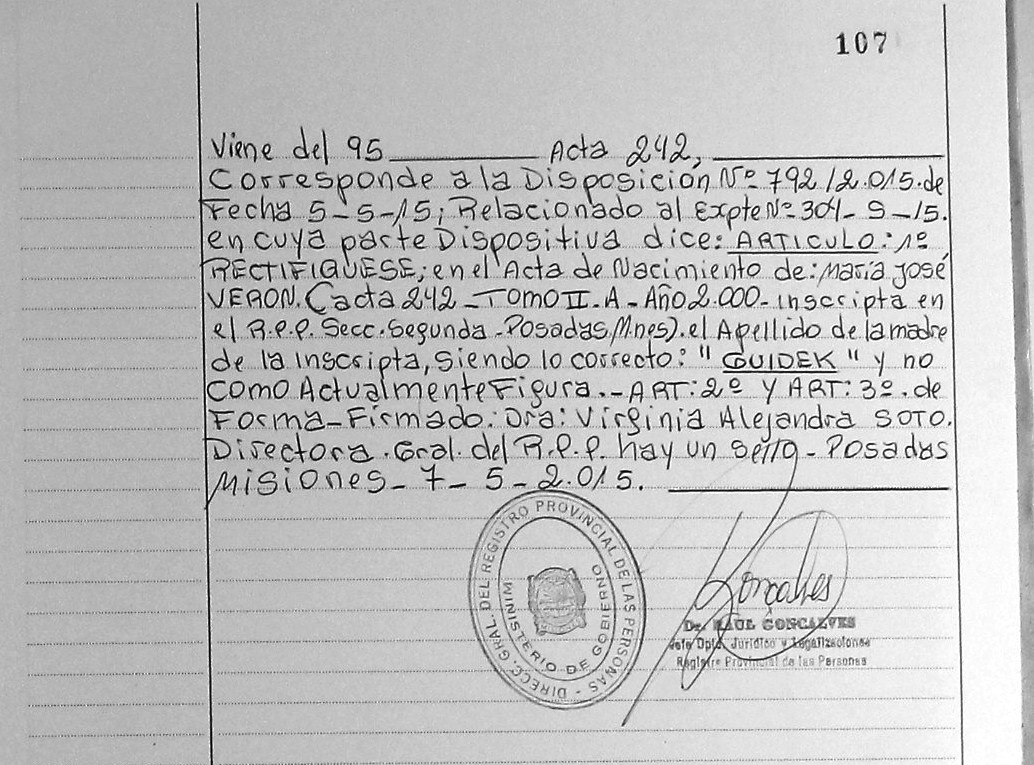 107
Viene del 95 Acta 242,
Corresponde a la Disposición Nº 792/2.015.de
Fecha 5-5-15; Relacionado al Expte Nº 304-S-15.
en cuya parte Dispositiva dice: ARTICULO: 1º
RECTIFIQUESE; en el Acta de Nacimiento de: María José
VERON. (acta 242 - Tomo II. A - Año 2.000 - inscripta en
el R.P.P. Secc. Segunda - Posadas, Mnes). el Apellido de la madre
de la inscripta, siendo lo correcto: "GUIDEK" y no
como Actualmente Figura. - ART: 2º y ART: 3º. de
Forma - Firmado: Dra: Virginia Alejandra SOTO.
Directora. Gral. del R.P.P. hay un sello - Posadas
Misiones - 7 - 5 - 2.015.
DIRECC. GRAL. DEL REGISTRO PROVINCIAL DE LAS PERSONAS -
MINISTERIO DE GOBIERNO
Goncalves
Dr. RAUL GONCALVES
Jefe Dpto. Jurídico y Legalizaciones
Registro Provincial de las Personas